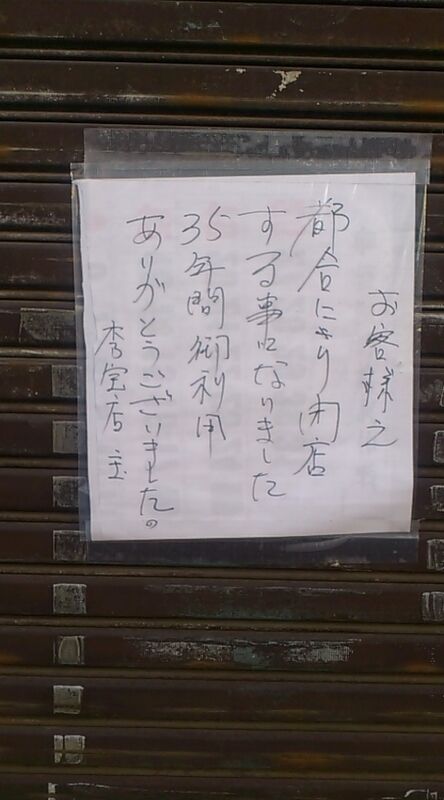 お客様え
都合により閉店
する事になりました
35年間御利用
ありがとうございました。
李宝店主